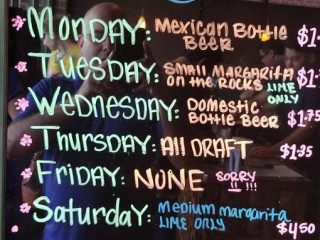 Monday: Mexican Bottle
Beer
Tuesday: Small Margarita
on the Rocks LIME
ONLY
Wednesday: Domestic
Bottle Beer $1.75
Thursday: All DRAFT $1.35
Friday: NONE SORRY
!! !!!
Saturday: Medium margarita
LIME ONLY $4.50